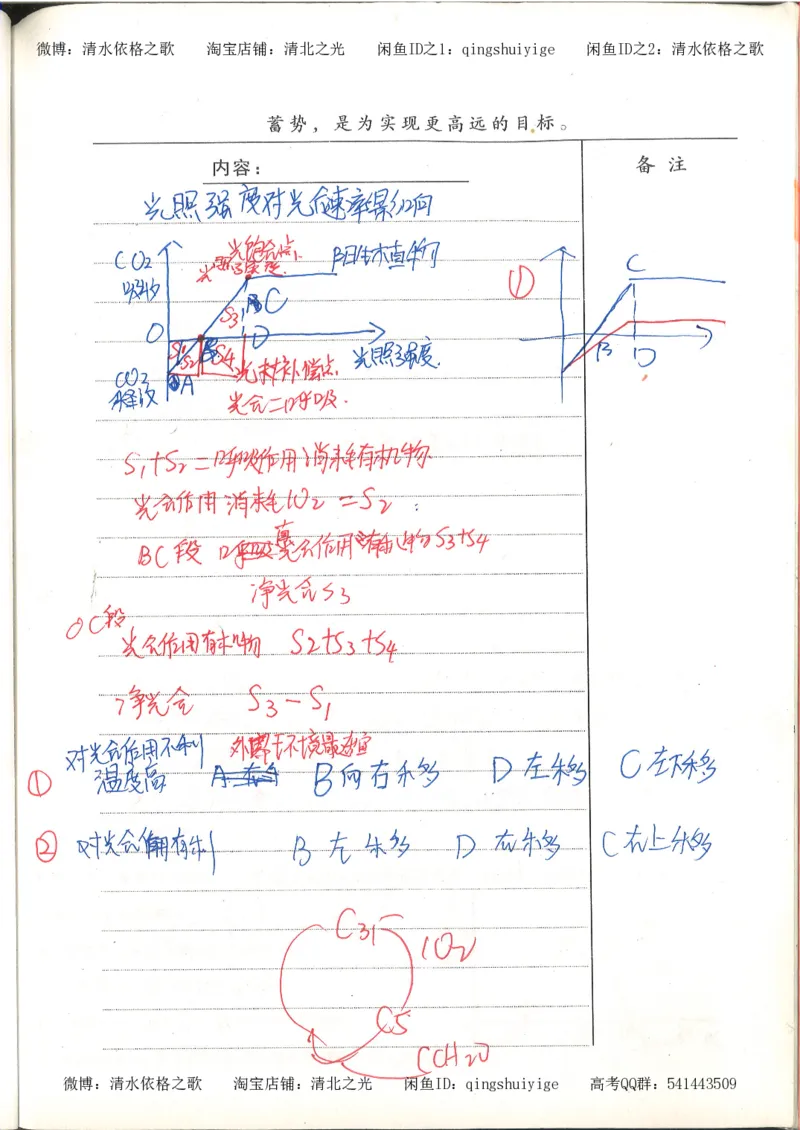 微博：清水依格之歌 淘宝店铺：清北之光 闲鱼ID之1：qingshuiyige 闲鱼ID之2：清水依格之歌
蓄势，是为实现更高远的目标。
内容：
备 注
光照强度对光合速率影响
CO2
吸收
光饱和点
光照强度
阳生植物
①
C
S3
C
O
D
S1
S2
S4
B
D
光照强度
CO2
释放
A
光补偿点
光合=呼吸
S1+S2=呼吸作用消耗有机物
光合作用消耗CO2=S2
BC段 真光合作用有机物S3+S4
净光合S3
OC段
光合作用有机物 S2+S3+S4
净光合 S3-S1
对光合作用不利 外界环境最适宜
① 温度高 B向右移 D左移 C左下移
② 对光合作用有利 B左移 D右移 C右上移
C3
CO2
C5
(CH2O)
微博：清水依格之歌 淘宝店铺：清北之光 闲鱼ID：qingshuiyige 高考QQ群：541443509